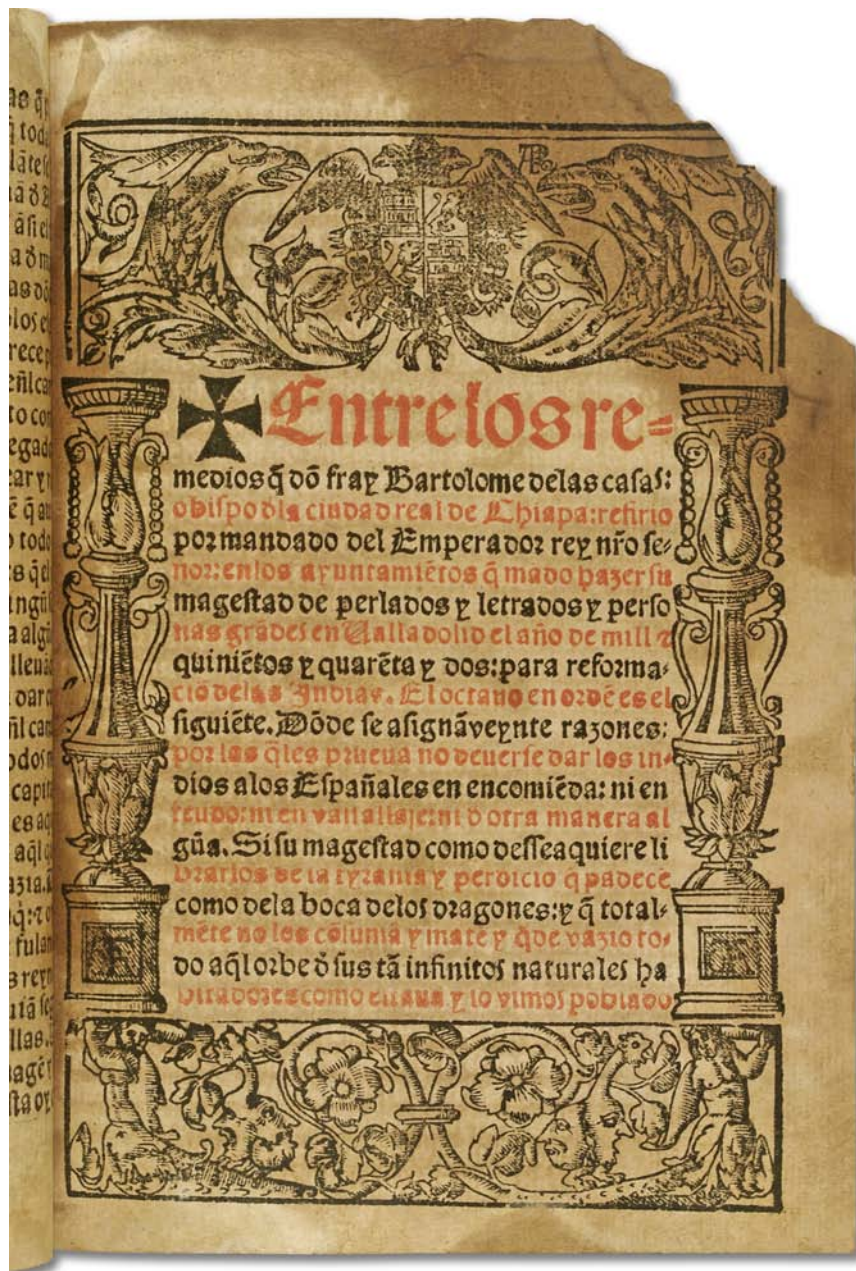 Entre los re=
medios q̃ dõ fray Bartolome delas casas:
obispo dl̃a ciudad real de Chiapa: refirio
por mandado del Emperador rey nr̃o se-
ñor: enlos ayuntamiẽtos q̃ mãdo hazer su
magestad de perlados y letrados y perso
nas grãdes en Ualladolid el año de mill ⁊
quiniẽtos y quarẽta y dos: para reforma-
ciõ delas Indias. El octauo en ordẽ es el
siguiẽte. Dõde se asignã veynte razones:
por las q̃les prueua no deuerse dar los in-
dios alos Españales en encomiẽda: ni en
feudo: ni en vassallaje: ni d̃ otra manera al
gũa. Si su magestad como dessea quiere li
brarlos de la tyrania y perdiciõ q̃ padecẽ
como dela boca delos dragones: y q̃ total-
mẽte no los cõsuma y matẽ y q̃de vazio to-
do aq̃l orbe d̃ sus tã infinitos naturales ha
bitadores como estaua y lo vimos poblado